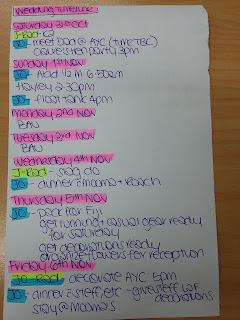 Wedding Timeline:
Saturday 31st Oct
J-Rad -
JO - meet Dad @ AYC (time TBC)
party 3pm
Sunday 1st Nov
JO - 6:30am
Hayley 2:30pm
JO - float tank 4pm
Monday 2nd Nov
BAU
Tuesday 3rd Nov
BAU
Wednesday 4th Nov
J-Rad - stag do
JO - dinner @ mama + Roach
Thursday 5th Nov
JO - pack for Fiji
get running casual gear ready
for saturday
get decorations ready
organize flowers for reception
Friday 6th Nov
JO - Rad - decorate AYC 5pm
JO - dinner @ steff, etc - give steff
decorations
stay @ Mama's